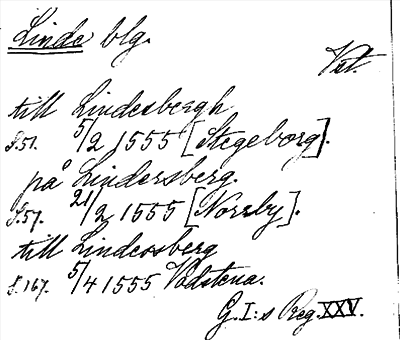 Linde blg.
Vst.
till Lindesbergh
s. 51. 5/2 1555 [Stegeborg].
på Lindersberg.
s. 57. 21/2 1555 [Norrby].
till Lindersberg
s. 167. 5/4 1555 Vadstena.
G. I:s Reg. XXV.